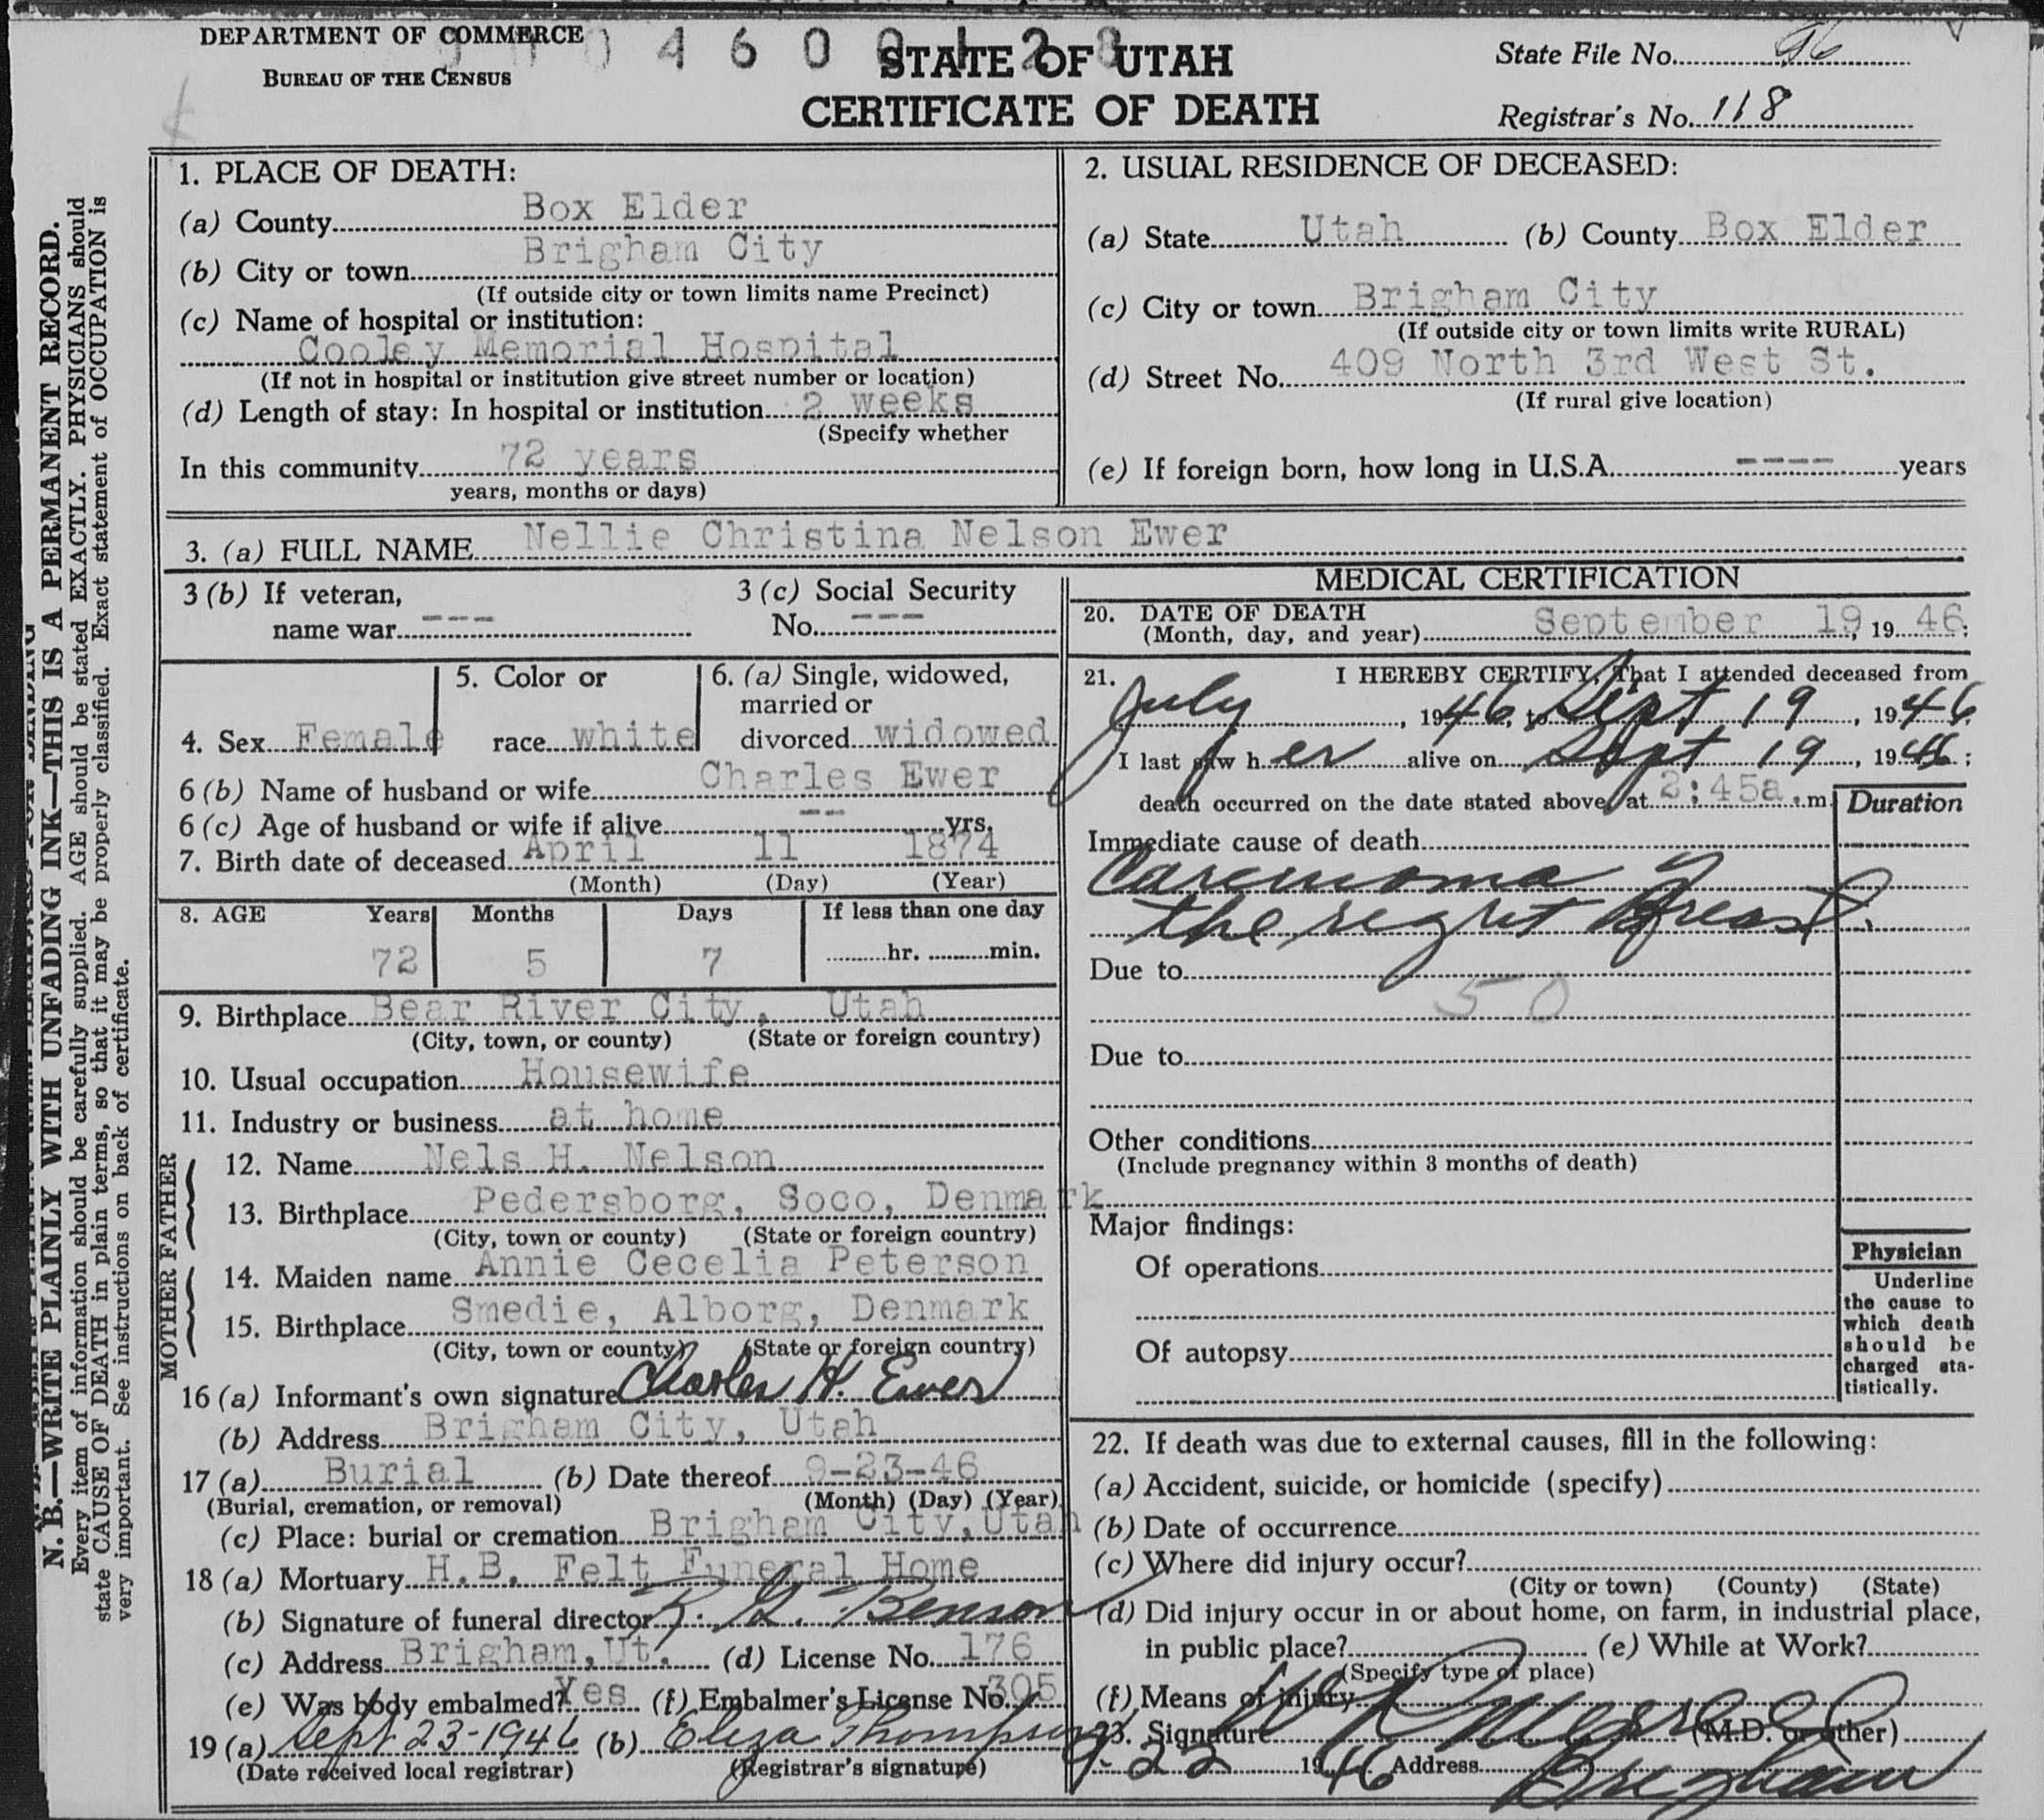 DEPARTMENT OF COMMERCE
BUREAU OF THE CENSUS
STATE OF UTAH
CERTIFICATE OF DEATH
State File No. 96
Registrar's No. 118
N. B.—WRITE PLAINLY WITH UNFADING INK—THIS IS A PERMANENT RECORD.
Every item of information should be carefully supplied. AGE should be stated EXACTLY. PHYSICIANS should
state CAUSE OF DEATH in plain terms, so that it may be properly classified. Exact statement of OCCUPATION is
very important. See instructions on back of certificate.
1. PLACE OF DEATH:
(a) County Box Elder
(b) City or town Brigham City
(If outside city or town limits name Precinct)
(c) Name of hospital or institution:
Cooley Memorial Hospital
(If not in hospital or institution give street number or location)
(d) Length of stay: In hospital or institution 2 weeks
(Specify whether
In this community 72 years
years, months or days)
2. USUAL RESIDENCE OF DECEASED:
(a) State Utah (b) County Box Elder
(c) City or town Brigham City
(If outside city or town limits write RURAL)
(d) Street No. 409 North 3rd West St.
(If rural give location)
(e) If foreign born, how long in U.S.A. ---- years
3. (a) FULL NAME Nellie Christina Nelson Ewer
3 (b) If veteran, 3 (c) Social Security
name war --- No. ---
4. Sex Female
5. Color or
race white
6. (a) Single, widowed,
married or
divorced widowed
6 (b) Name of husband or wife Charles Ewer
6 (c) Age of husband or wife if alive -- yrs.
7. Birth date of deceased April 11 1874
(Month) (Day) (Year)
8. AGE Years Months Days If less than one day
72 5 7 hr. min.
9. Birthplace Bear River City, Utah
(City, town, or county) (State or foreign country)
10. Usual occupation Housewife
11. Industry or business at home
FATHER
12. Name Nels H. Nelson
13. Birthplace Pedersborg, Soco, Denmark
(City, town or county) (State or foreign country)
MOTHER
14. Maiden name Annie Cecelia Peterson
15. Birthplace Smedie, Alborg, Denmark
(City, town or county) (State or foreign country)
16 (a) Informant's own signature Charles H. Ewer
(b) Address Brigham City, Utah
17 (a) Burial (b) Date thereof 9-23-46
(Burial, cremation, or removal) (Month) (Day) (Year)
(c) Place: burial or cremation Brigham City, Utah
18 (a) Mortuary H.B. Felt Funeral Home
(b) Signature of funeral director Benson
(c) Address Brigham, Ut. (d) License No. 176
(e) Was body embalmed? Yes (f) Embalmer's License No. 305
19 (a) Sept 23-1946 (b) Eliza Thompson
(Date received local registrar) (Registrar's signature)
MEDICAL CERTIFICATION
20. DATE OF DEATH
(Month, day, and year) September 19, 19 46;
21. I HEREBY CERTIFY, That I attended deceased from
July, 19 46, to Sept 19, 19 46
I last saw h er alive on Sept 19, 19 46;
death occurred on the date stated above, at 2:45a.m.
Duration
Immediate cause of death
Carcinoma of
the right Breast.
Due to
50
Due to
Other conditions
(Include pregnancy within 3 months of death)
Major findings:
Of operations
Of autopsy
Physician
Underline
the cause to
which death
should be
charged sta-
tistically.
22. If death was due to external causes, fill in the following:
(a) Accident, suicide, or homicide (specify)
(b) Date of occurrence
(c) Where did injury occur?
(City or town) (County) (State)
(d) Did injury occur in or about home, on farm, in industrial place,
in public place? (e) While at Work?
(Specify type of place)
(f) Means of injury
23. Signature (M.D. or other)
9-22 1946 Address Brigham